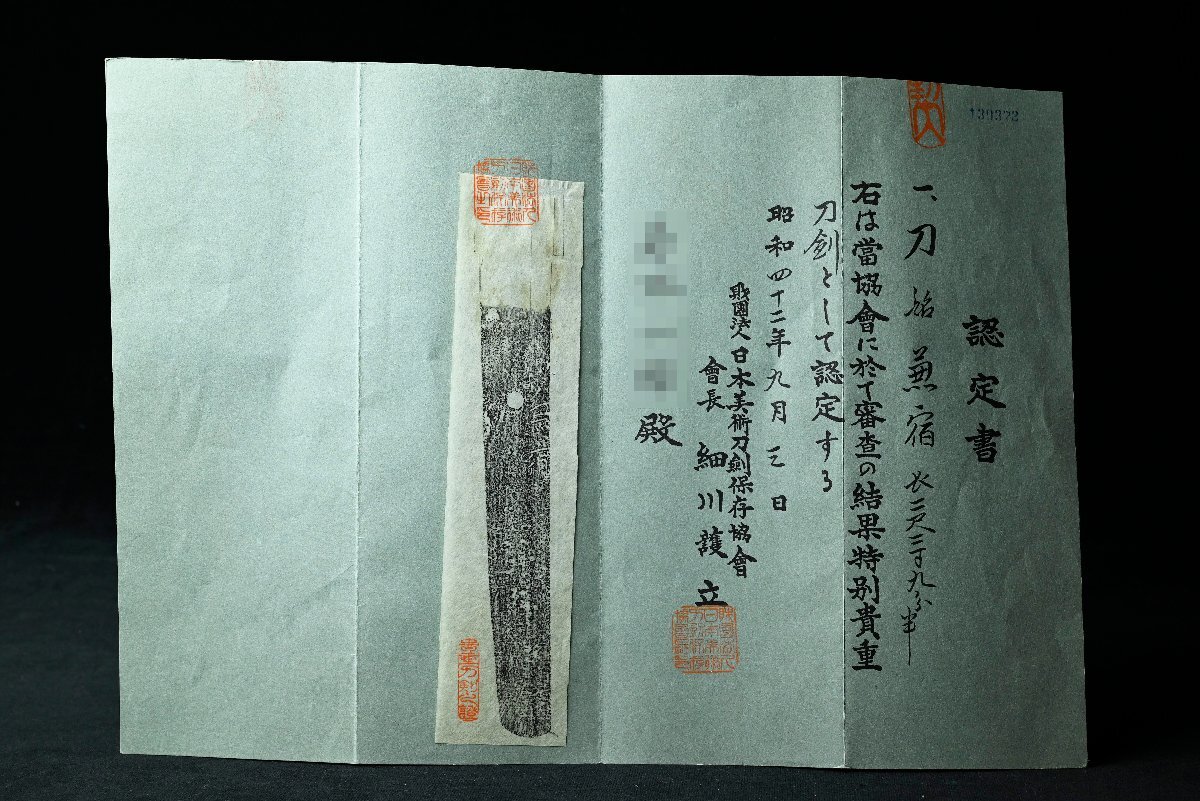 139372
認定書
一、刀 銘 兼宿 長二尺三寸九分半
右は當協會に於て審査の結果特別貴重
刀劍として認定する
昭和四十二年九月三日
財團法人日本美術刀劍保存協會
會長 細川護立
殿